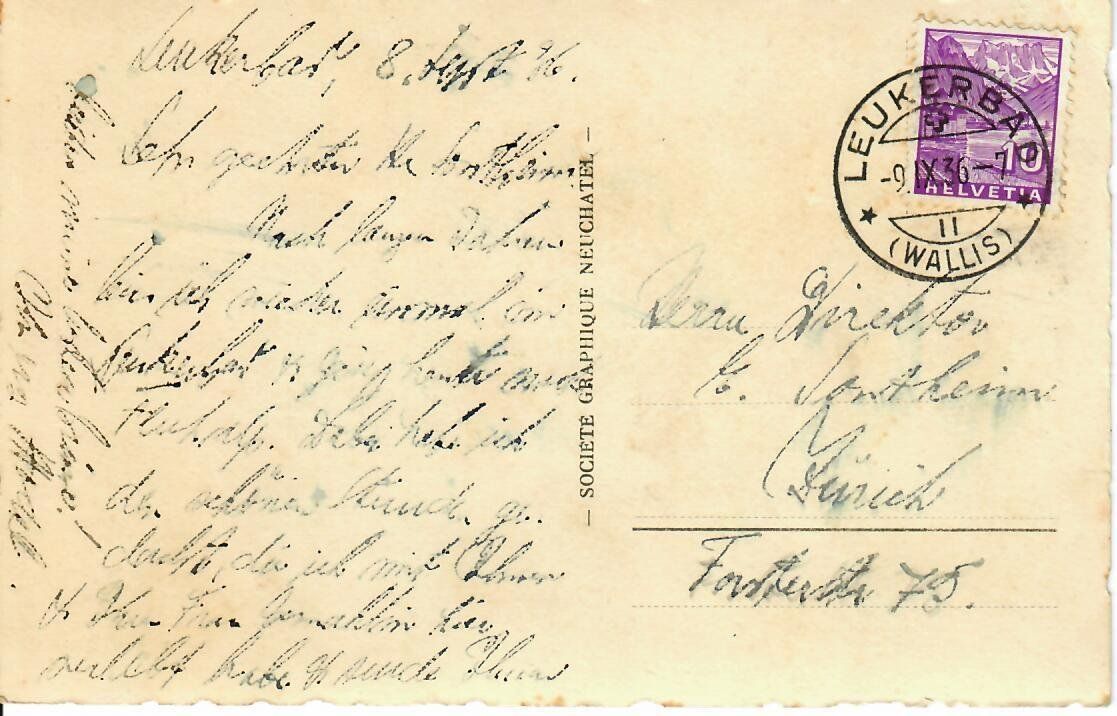 Leukerbad, 8. Sept 36.
Sehr geehrter Hr Sontheim
Nach langen Jahren
bin ich wieder einmal in
Leukerbad & ging heute
Fluhalp. Dabei habe ich
der schönen Stunden ge-
dacht, die ich mit Ihnen
& Ihrer Frau Gemahlin hier
verlebt habe & sende Ihnen
beiden meine
Ihr
SOCIETE GRAPHIQUE NEUCHATEL
LEUKERBAD
-9.IX.36-7
II
(WALLIS)
10
HELVETIA
Herrn Direktor
E. Sontheim
Zürich
Forsterstr 75.